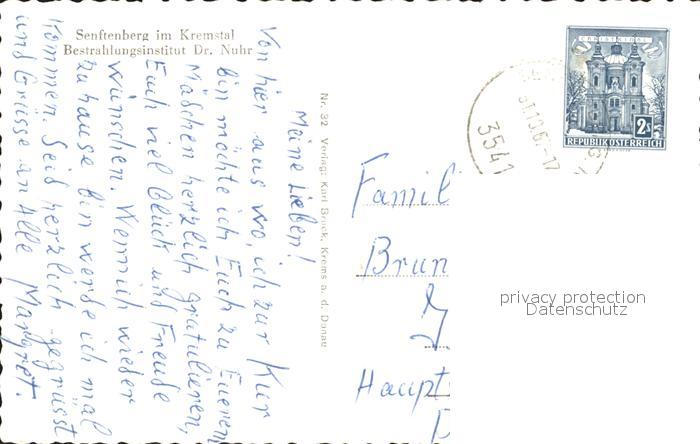 Senftenberg im Kremstal
Bestrahlungsinstitut Dr. Nuhr
Meine Lieben!
Von hier aus wo, ich zur Kur
bin möchte ich Euch zu Eueren
Mäschen herzlich gratulieren,
Euch viel Glück und Freude
wünschen. Wenn ich wieder
zuhause bin werde ich mal
kommen. Seid herzlich gegrüsst
und Grüsse an Alle Margret.
Nr. 32 Verlag: Karl Bruck, Krems a. d. Donau
CHRISTKINDL
2S
REPUBLIK ÖSTERREICH
3541
Famil
Brun
Haupt
privacy protection
Datenschutz